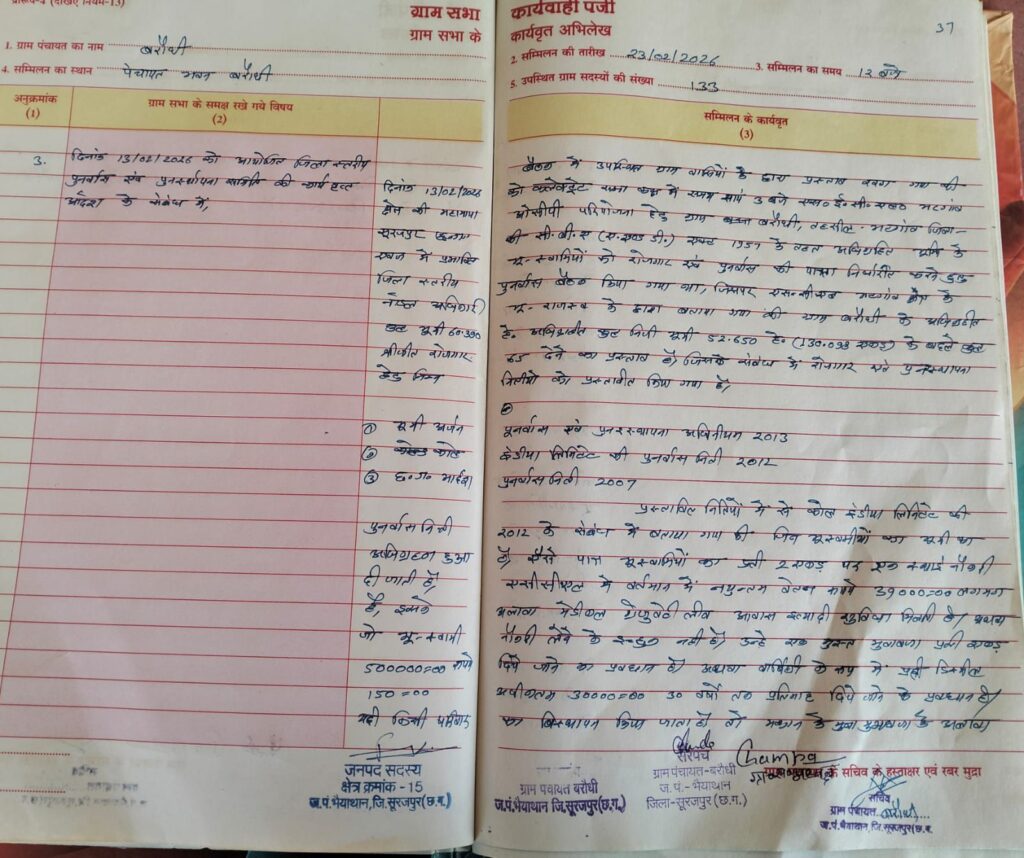 प्रारूप-4 (देखिए नियम-13)
ग्राम सभा कार्यवाही पंजी
37
ग्राम सभा के कार्यवृत अभिलेख
1. ग्राम पंचायत का नाम बरौधी
2. सम्मिलन की तारीख 23/02/2026 3. सम्मिलन का समय 12 बजे
4. सम्मिलन का स्थान पंचायत भवन बरौधी
5. उपस्थित ग्राम सदस्यों की संख्या 133
अनुक्रमांक (1)
ग्राम सभा के समक्ष रखे गये विषय (2)
सम्मिलन के कार्यवृत (3)
3. दिनांक 13/02/2026 को आयोजित जिला स्तरीय
पुनर्वास एवं पुनर्स्थापना समिति की
आदेश के संबंध में,
बैठक में उपस्थित ग्राम वासियों के द्वारा प्रस्ताव गया की
दिनांक 13/02/2026 को कलेक्ट्रेट सभा कक्ष में समय 3 बजे एस० ई० सी० एल०
क्षेत्र की ओसीपी परियोजना हेतु ग्राम बरौधी, तहसील- जिला-
सूरजपुर की सी.बी.ए (ए.एण्ड डी.) एक्ट 1957 के तहत अधिग्रहित भूमि के
भू-स्वामियों को रोजगार एवं पुनर्वास की पात्रता निर्धारित करने हेतु
जिला स्तरीय पुनर्वास बैठक किया गया था, जिसपर के
नोडल अधिकारी भू-राजस्व के द्वारा बताया गया की ग्राम बरौधी के अधिग्रहित
कुल भूमि 60.390 हे० कुल निजी भूमी 52.650 हे. (130.099 एकड़) के बदले कुल
रोजगार 65 देने का प्रस्ताव है, जिसके संबंध में रोजगार एवं पुनर्स्थापना
हेतु निम्न नितीयो को प्रस्तावीत किया गया है,
① भूमी अर्जन पुनर्वास एवं पुनरस्थापना अधिनीयम 2013
② इंडीया लिमिटेट की पुनर्वास निती 2012
③ छ.ग. आदर्श पुनर्वास निती 2007
प्रस्तावित नितियों में से कोल इंडीया लिमिटेट की
पुनर्वास निती 2012 के संबंध में बताया गया की जिन भूस्वामीयों का भूमी का
अधिग्रहण हुआ है, ऐसे पात्र भूस्वामियों का प्रती 2 एकड़ पर एक स्थाई नौकरी
दी जाती है, एसईसीएल में वर्तमान में न्युनतम वेतन रूपये 39000=00 लगभग
है, इसके अलावा मेडीकल ग्रेजुवेटी लीव आवास इत्यादी सुविधा मिलती है। अथवा
जो भू-स्वामी नौकरी लेने के इच्छुक नही है, उन्हे एक मुस्त मुवावजा प्रती एकड़
500000=00 रूपये दिये जाने का प्रवधान है। अथवा वार्षिकी के रूप में प्रती डिस्मील
150=00 अधीकतम 30000=00 30 वर्षो तक प्रतिमाह दिये जाने के प्रवधान है।
यदी किसी परिवार का विस्थापन किया जाता है तो मकान के के अलावा
जनपद सदस्य
क्षेत्र क्रमांक - 15
ज.पं.भैयाथान, जि.सूरजपुर(छ.ग.)
ग्राम पंचायत बरौधी
ज.पं.भैयाथान, जि.सूरजपुर(छ.ग.)
सरपंच
ग्राम पंचायत-बरौधी
ज.पं.- भैयाथान
जिला-सूरजपुर (छ.ग.)
Champa
के सचिव के हस्ताक्षर एवं रबर मुद्रा
सचिव
ग्राम पंचायत बरौधी
ज.पं.भैयाथान, जि.सूरजपुर(छ.ग.